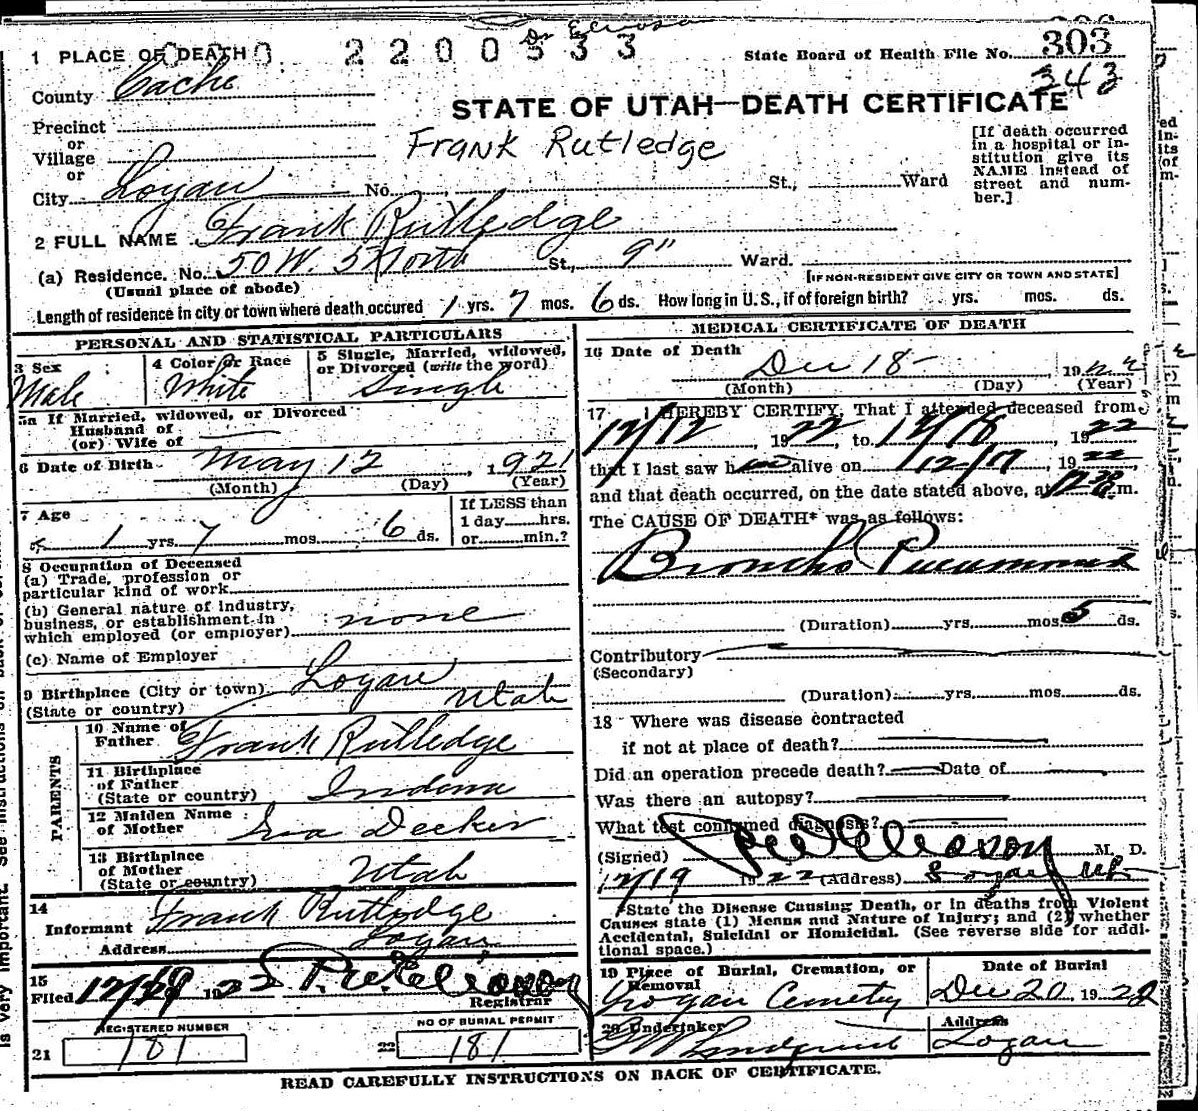 Dr Eliason
2200533
1 PLACE OF DEATH
State Board of Health File No. 303
343
County Cache
STATE OF UTAH—DEATH CERTIFICATE
Precinct
or
Village
or
City Logan No. St., Ward
Frank Rutledge
[If death occurred in a hospital or institution give its NAME instead of street and number.]
2 FULL NAME Frank Rutledge
(a) Residence. No. 50 W. 5 North St., 9" Ward.
(Usual place of abode)
[IF NON-RESIDENT GIVE CITY OR TOWN AND STATE]
Length of residence in city or town where death occured 1 yrs. 7 mos. 6 ds. How long in U. S., if of foreign birth? yrs. mos. ds.
PERSONAL AND STATISTICAL PARTICULARS
3 Sex Male
4 Color or Race White
5 Single, Married, widowed, or Divorced (write the word) Single
5a If Married, widowed, or Divorced
Husband of
(or) Wife of
6 Date of Birth May 12, 1921
(Month) (Day) (Year)
7 Age 1 yrs. 7 mos. 6 ds.
If LESS than
1 day hrs.
or min.?
8 Occupation of Deceased
(a) Trade, profession or
particular kind of work
(b) General nature of industry,
business, or establishment in
which employed (or employer) none
(c) Name of Employer
9 Birthplace (City or town) Logan
(State or country) Utah
PARENTS
10 Name of Father Frank Rutledge
11 Birthplace of Father (State or country)
12 Maiden Name of Mother Decker
13 Birthplace of Mother (State or country) Utah
14
Informant Frank Rutledge
Address Logan
15
Filed Registrar
REGISTERED NUMBER
21 181
NO OF BURIAL PERMIT
22 181
MEDICAL CERTIFICATE OF DEATH
16 Date of Death Dec 18 1922
(Month) (Day) (Year)
17 I HEREBY CERTIFY, That I attended deceased from
12/12, 1922 to 12/18, 1922
that I last saw h alive on 12/17, 1922,
and that death occurred, on the date stated above, at m.
The CAUSE OF DEATH* was as follows:
Broncho Pneumonia
(Duration) yrs. mos. 5 ds.
Contributory
(Secondary)
(Duration) yrs. mos. ds.
18 Where was disease contracted
if not at place of death?
Did an operation precede death? Date of
Was there an autopsy?
What test confirmed diagnosis?
(Signed) Eliason M. D.
12/19 1922 (Address) Logan Ut
*State the Disease Causing Death, or in deaths from Violent
Causes state (1) Menus and Nature of Injury; and (2) whether
Accidental, Suicidal or Homicidal. (See reverse side for addi-
tional space.)
19 Place of Burial, Cremation, or Removal
Logan Cemetery
Date of Burial
Dec 20, 1922
20 Undertaker
Lindquist
Address
Logan
READ CAREFULLY INSTRUCTIONS ON BACK OF CERTIFICATE.